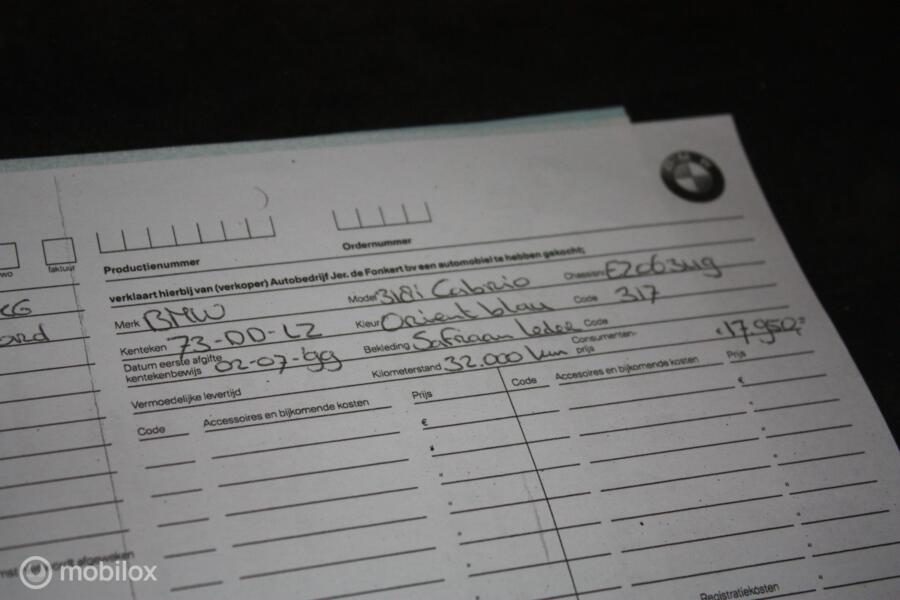 BMW
wo
faktuur
Productienummer
Ordernummer
verklaart hierbij van (verkoper) Autobedrijf Jer. de Fonkert bv een automobiel te hebben gekocht;
Merk BMW Model 318i Cabrio Chassisnr. EZ06349
Kenteken 73-DD-LZ Kleur Orient blau Code 317
Datum eerste afgifte kentekenbewijs 02-07-'99 Bekleding Safraan leder Code
Vermoedelijke levertijd Kilometerstand 32.000 km Consumenten-prijs € 17.950,=
Code Accessoires en bijkomende kosten Prijs Code Accessoires en bijkomende kosten Prijs
€ €
Registratiekosten
mobilox